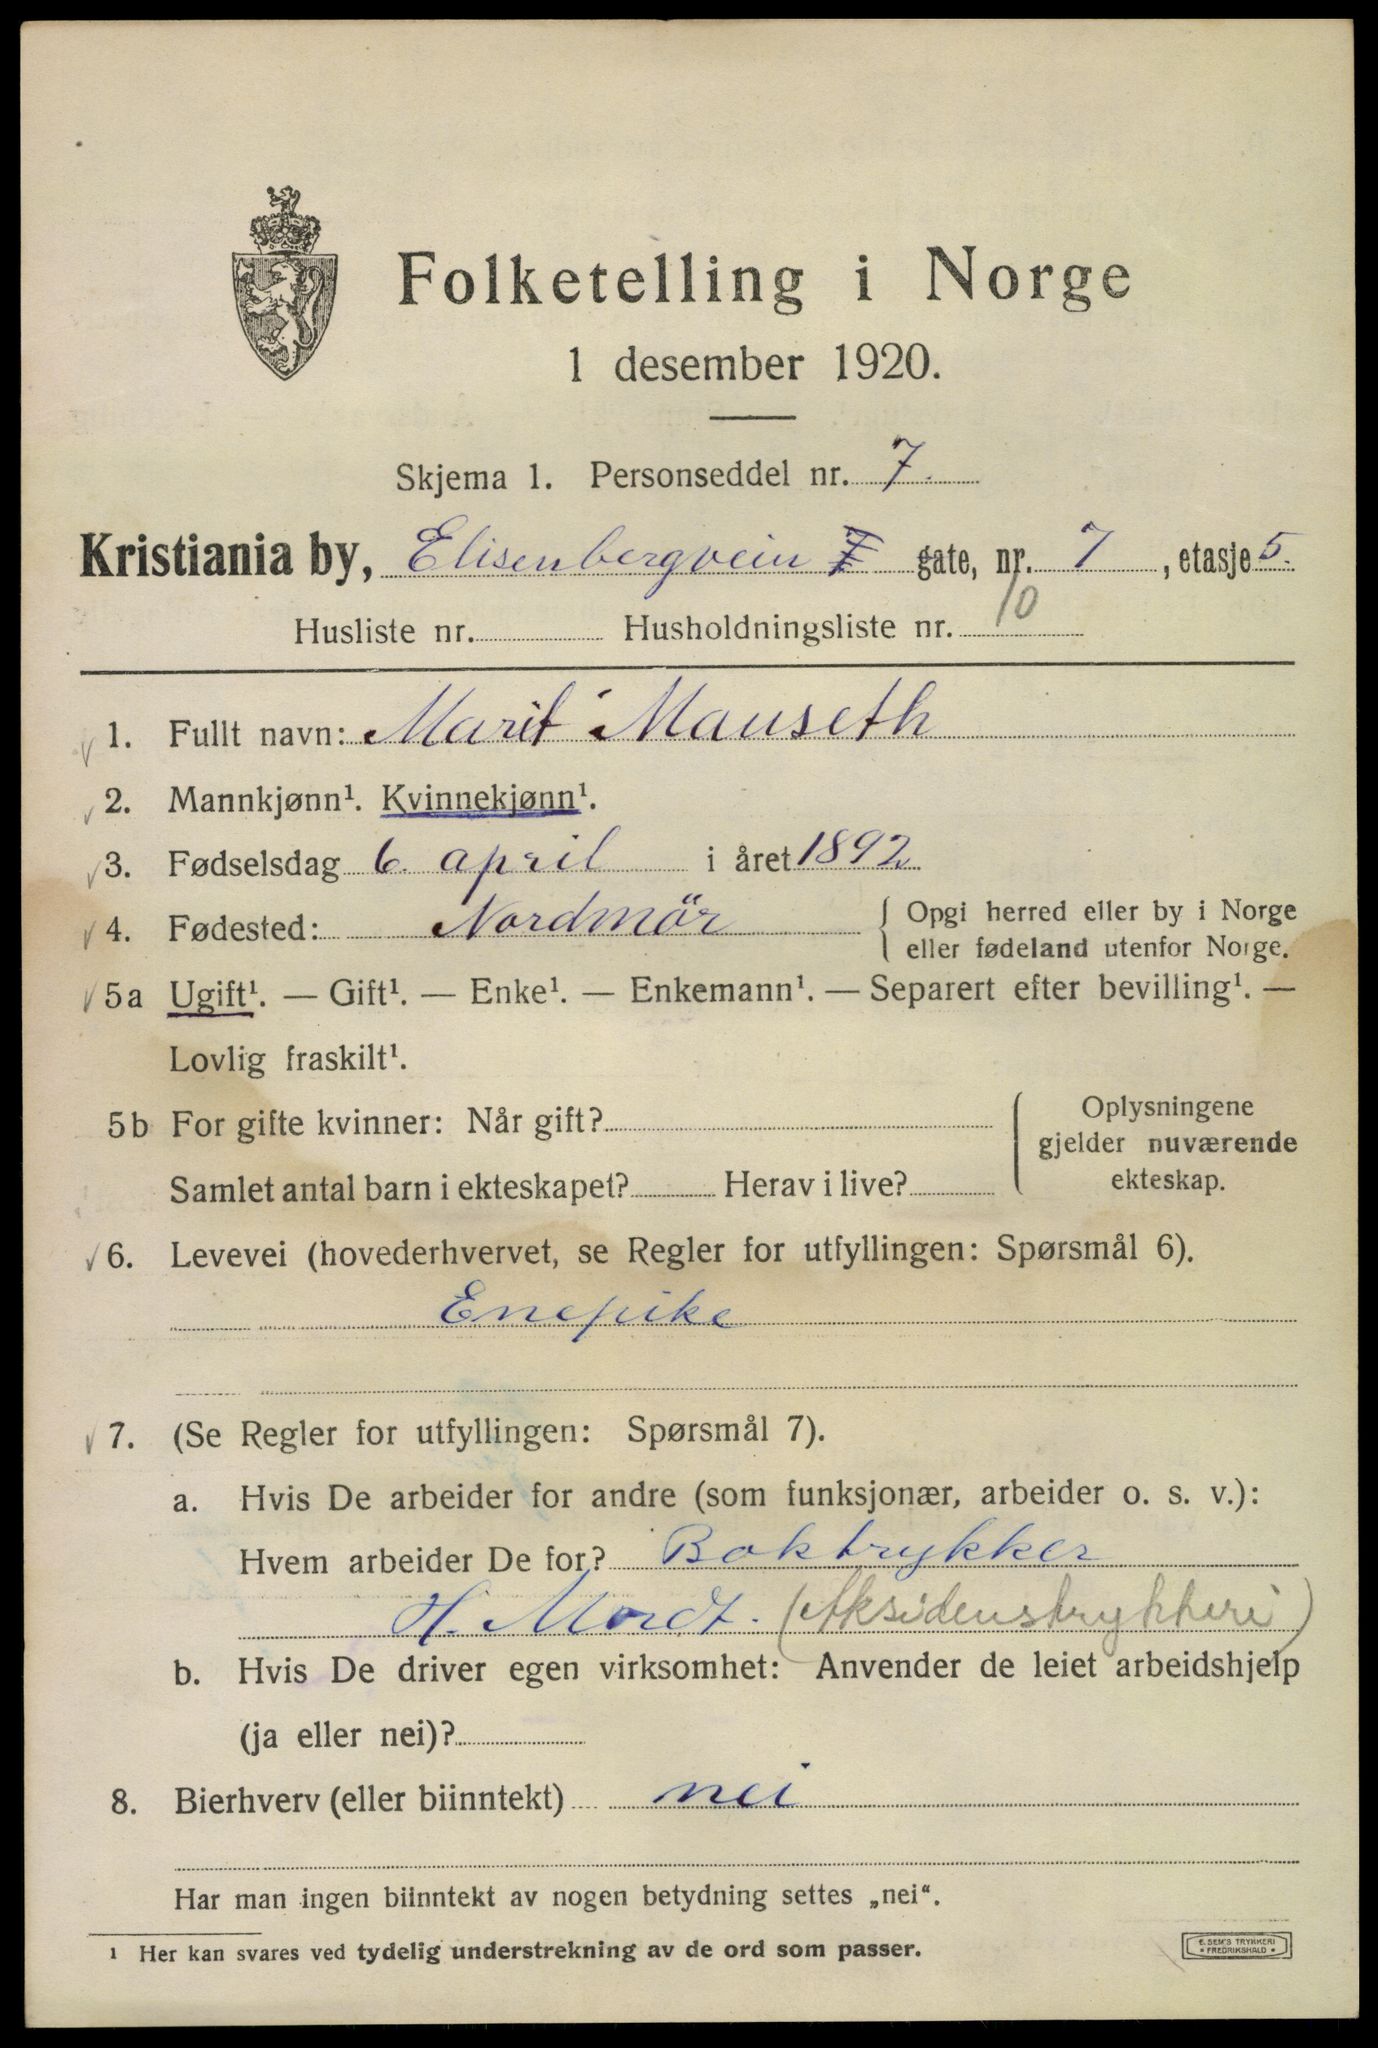 Folketelling i Norge
1 desember 1920.
Skjema 1. Personseddel nr. 7.
Kristiania by, Elisenbergveien 7 gate, nr. 7, etasje 5.
Husliste nr. Husholdningsliste nr. 10
1. Fullt navn: Marit Mauseth
2. Mannkjønn¹. Kvinnekjønn¹.
3. Fødselsdag 6. april i året 1892
4. Fødested: Nordmör { Opgi herred eller by i Norge
eller fødeland utenfor Norge.
5a Ugift¹. — Gift¹. — Enke¹. — Enkemann¹. — Separert efter bevilling¹. —
Lovlig fraskilt¹.
5b For gifte kvinner: Når gift? { Oplysningene
gjelder nuværende
Samlet antal barn i ekteskapet? Herav i live? ekteskap.
6. Levevei (hovederhvervet, se Regler for utfyllingen: Spørsmål 6).
Enepike
7. (Se Regler for utfyllingen: Spørsmål 7).
a. Hvis De arbeider for andre (som funksjonær, arbeider o. s. v.):
Hvem arbeider De for? Boktrykker
H. Mordt. (Aksidenstrykkeri)
b. Hvis De driver egen virksomhet: Anvender de leiet arbeidshjelp
(ja eller nei)?
8. Bierhverv (eller biinntekt) nei
Har man ingen biinntekt av nogen betydning settes „nei“.
1 Her kan svares ved tydelig understrekning av de ord som passer.
E. SEM'S TRYKKERI
* FREDRIKSHALD *